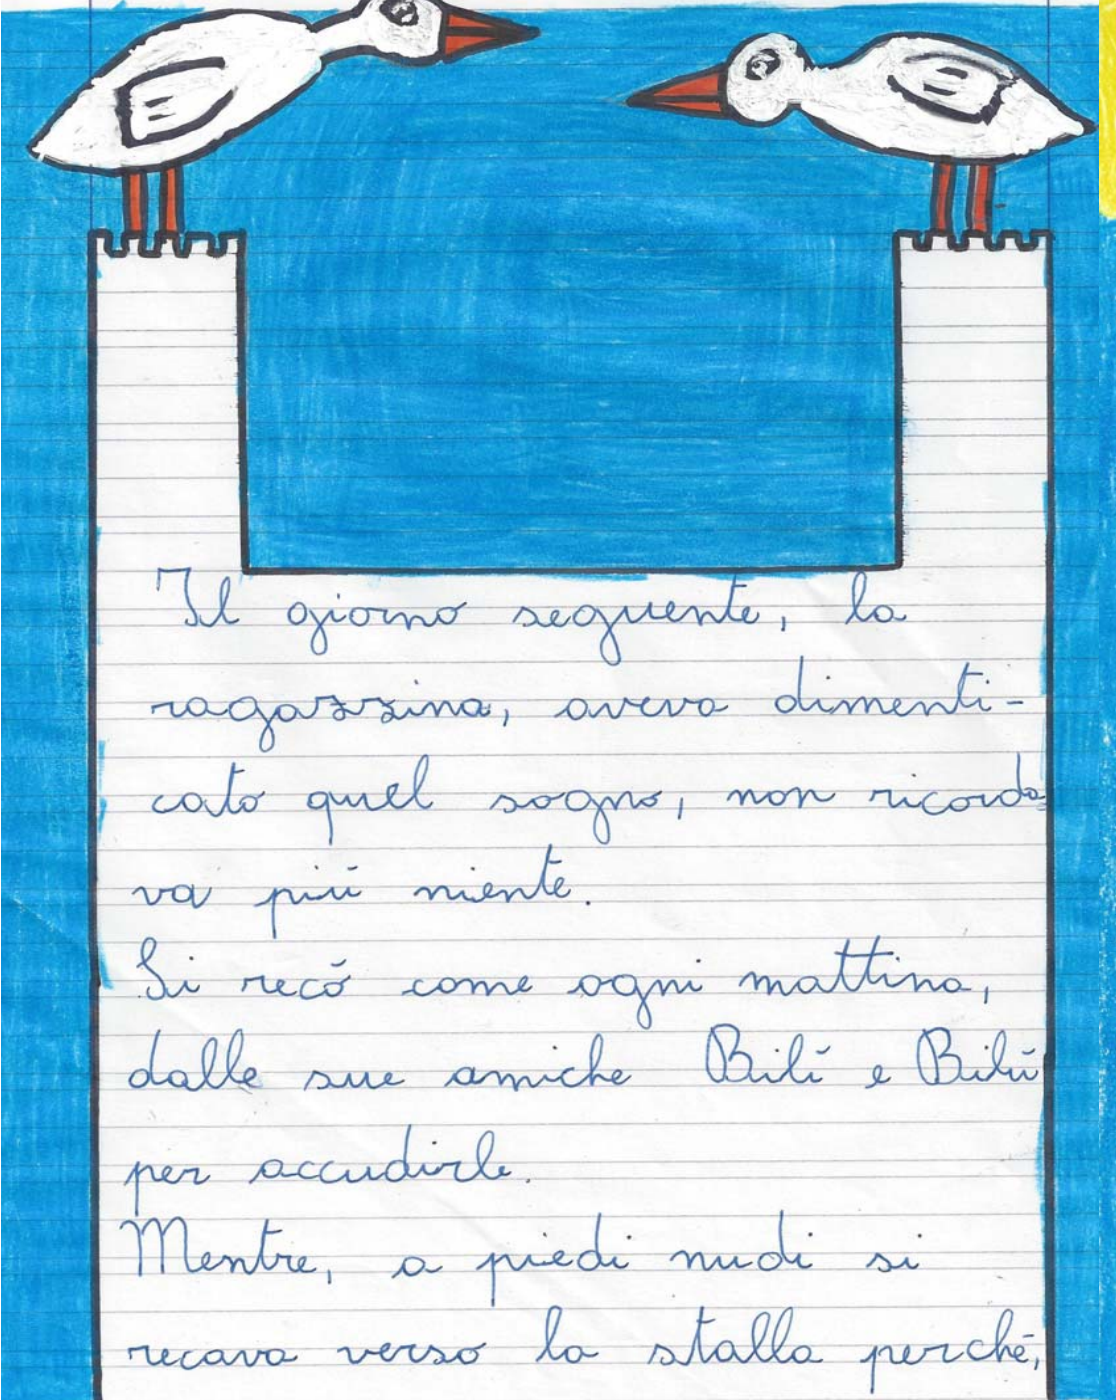 Il giorno seguente, la
ragazzina, aveva dimenti-
cato quel sogno, non ricorda-
va più niente.
Si recò come ogni mattina,
dalle sue amiche Bilí e Bilú
per accudirle.
Mentre, a piedi nudi si
recava verso la stalla perché,